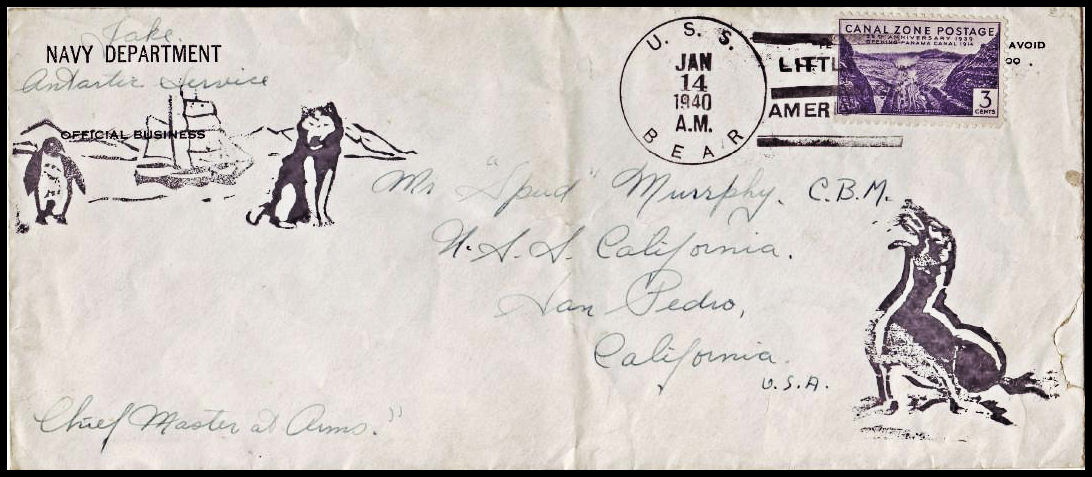 Jake.
NAVY DEPARTMENT
Antartic Service
OFFICIAL BUSINESS
U. S. S.
JAN
14
1940
A.M.
BEAR
LITTL
AMERI
CANAL ZONE POSTAGE
25TH ANNIVERSARY 1939
OPENING PANAMA CANAL 1914
3
CENTS
AVOID
00.
Mr "Spud" Murrphy. C.B.M.
U.S.S. California.
San Pedro,
California.
U.S.A.
Chief Master at Arms."